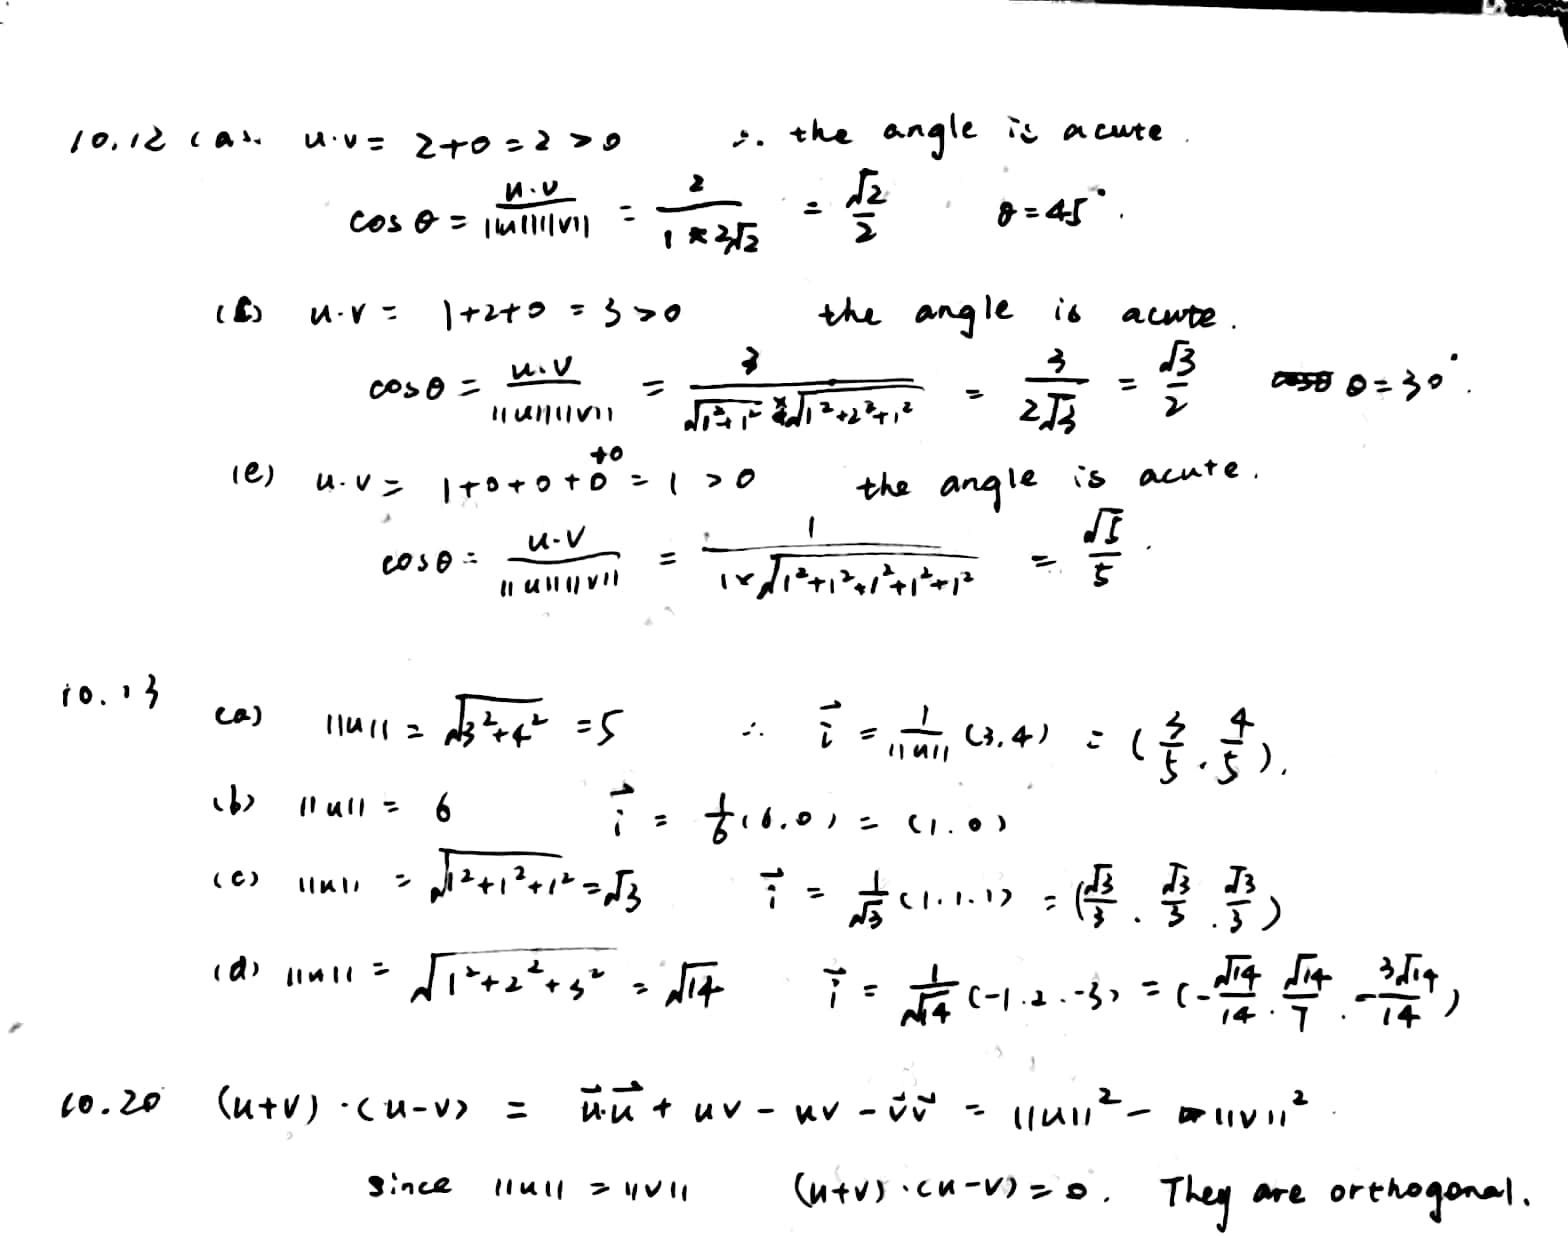 10.12 (a). u·v = 2+0 = 2 > 0 ∴ the angle is acute.
cos θ = u·v / ||u||||v|| = 2 / 1×2√2 = √2/2 θ = 45°.
u·v = 1+2+0 = 3 > 0 the angle is acute.
cos θ = u·v / ||u||||v|| = 3 / √1²+1² × √1²+2²+1² = 3 / 2√3 = √3/2 θ = 30°.
(e) u·v = 1+0+0+0+0 = 1 > 0 the angle is acute.
cos θ = u·v / ||u||||v|| = 1 / 1×√1²+1²+1²+1²+1² = √5/5.
10.13 (a) ||u|| = √3²+4² = 5 ∴ i⃗ = 1/||u|| (3,4) = (3/5, 4/5).
(b) ||u|| = 6 i⃗ = 1/6 (6,0) = (1,0)
(c) ||u|| = √1²+1²+1² = √3 i⃗ = 1/√3 (1,1,1) = (√3/3, √3/3, √3/3)
(d) ||u|| = √1²+2²+3² = √14 i⃗ = 1/√14 (-1,2,-3) = (-√14/14, √14/7, -3√14/14)
10.20 (u+v)·(u-v) = u⃗·u⃗ + uv - uv - v⃗v⃗ = ||u||² - ||v||².
since ||u|| = ||v|| (u+v)·(u-v) = 0. They are orthogonal.